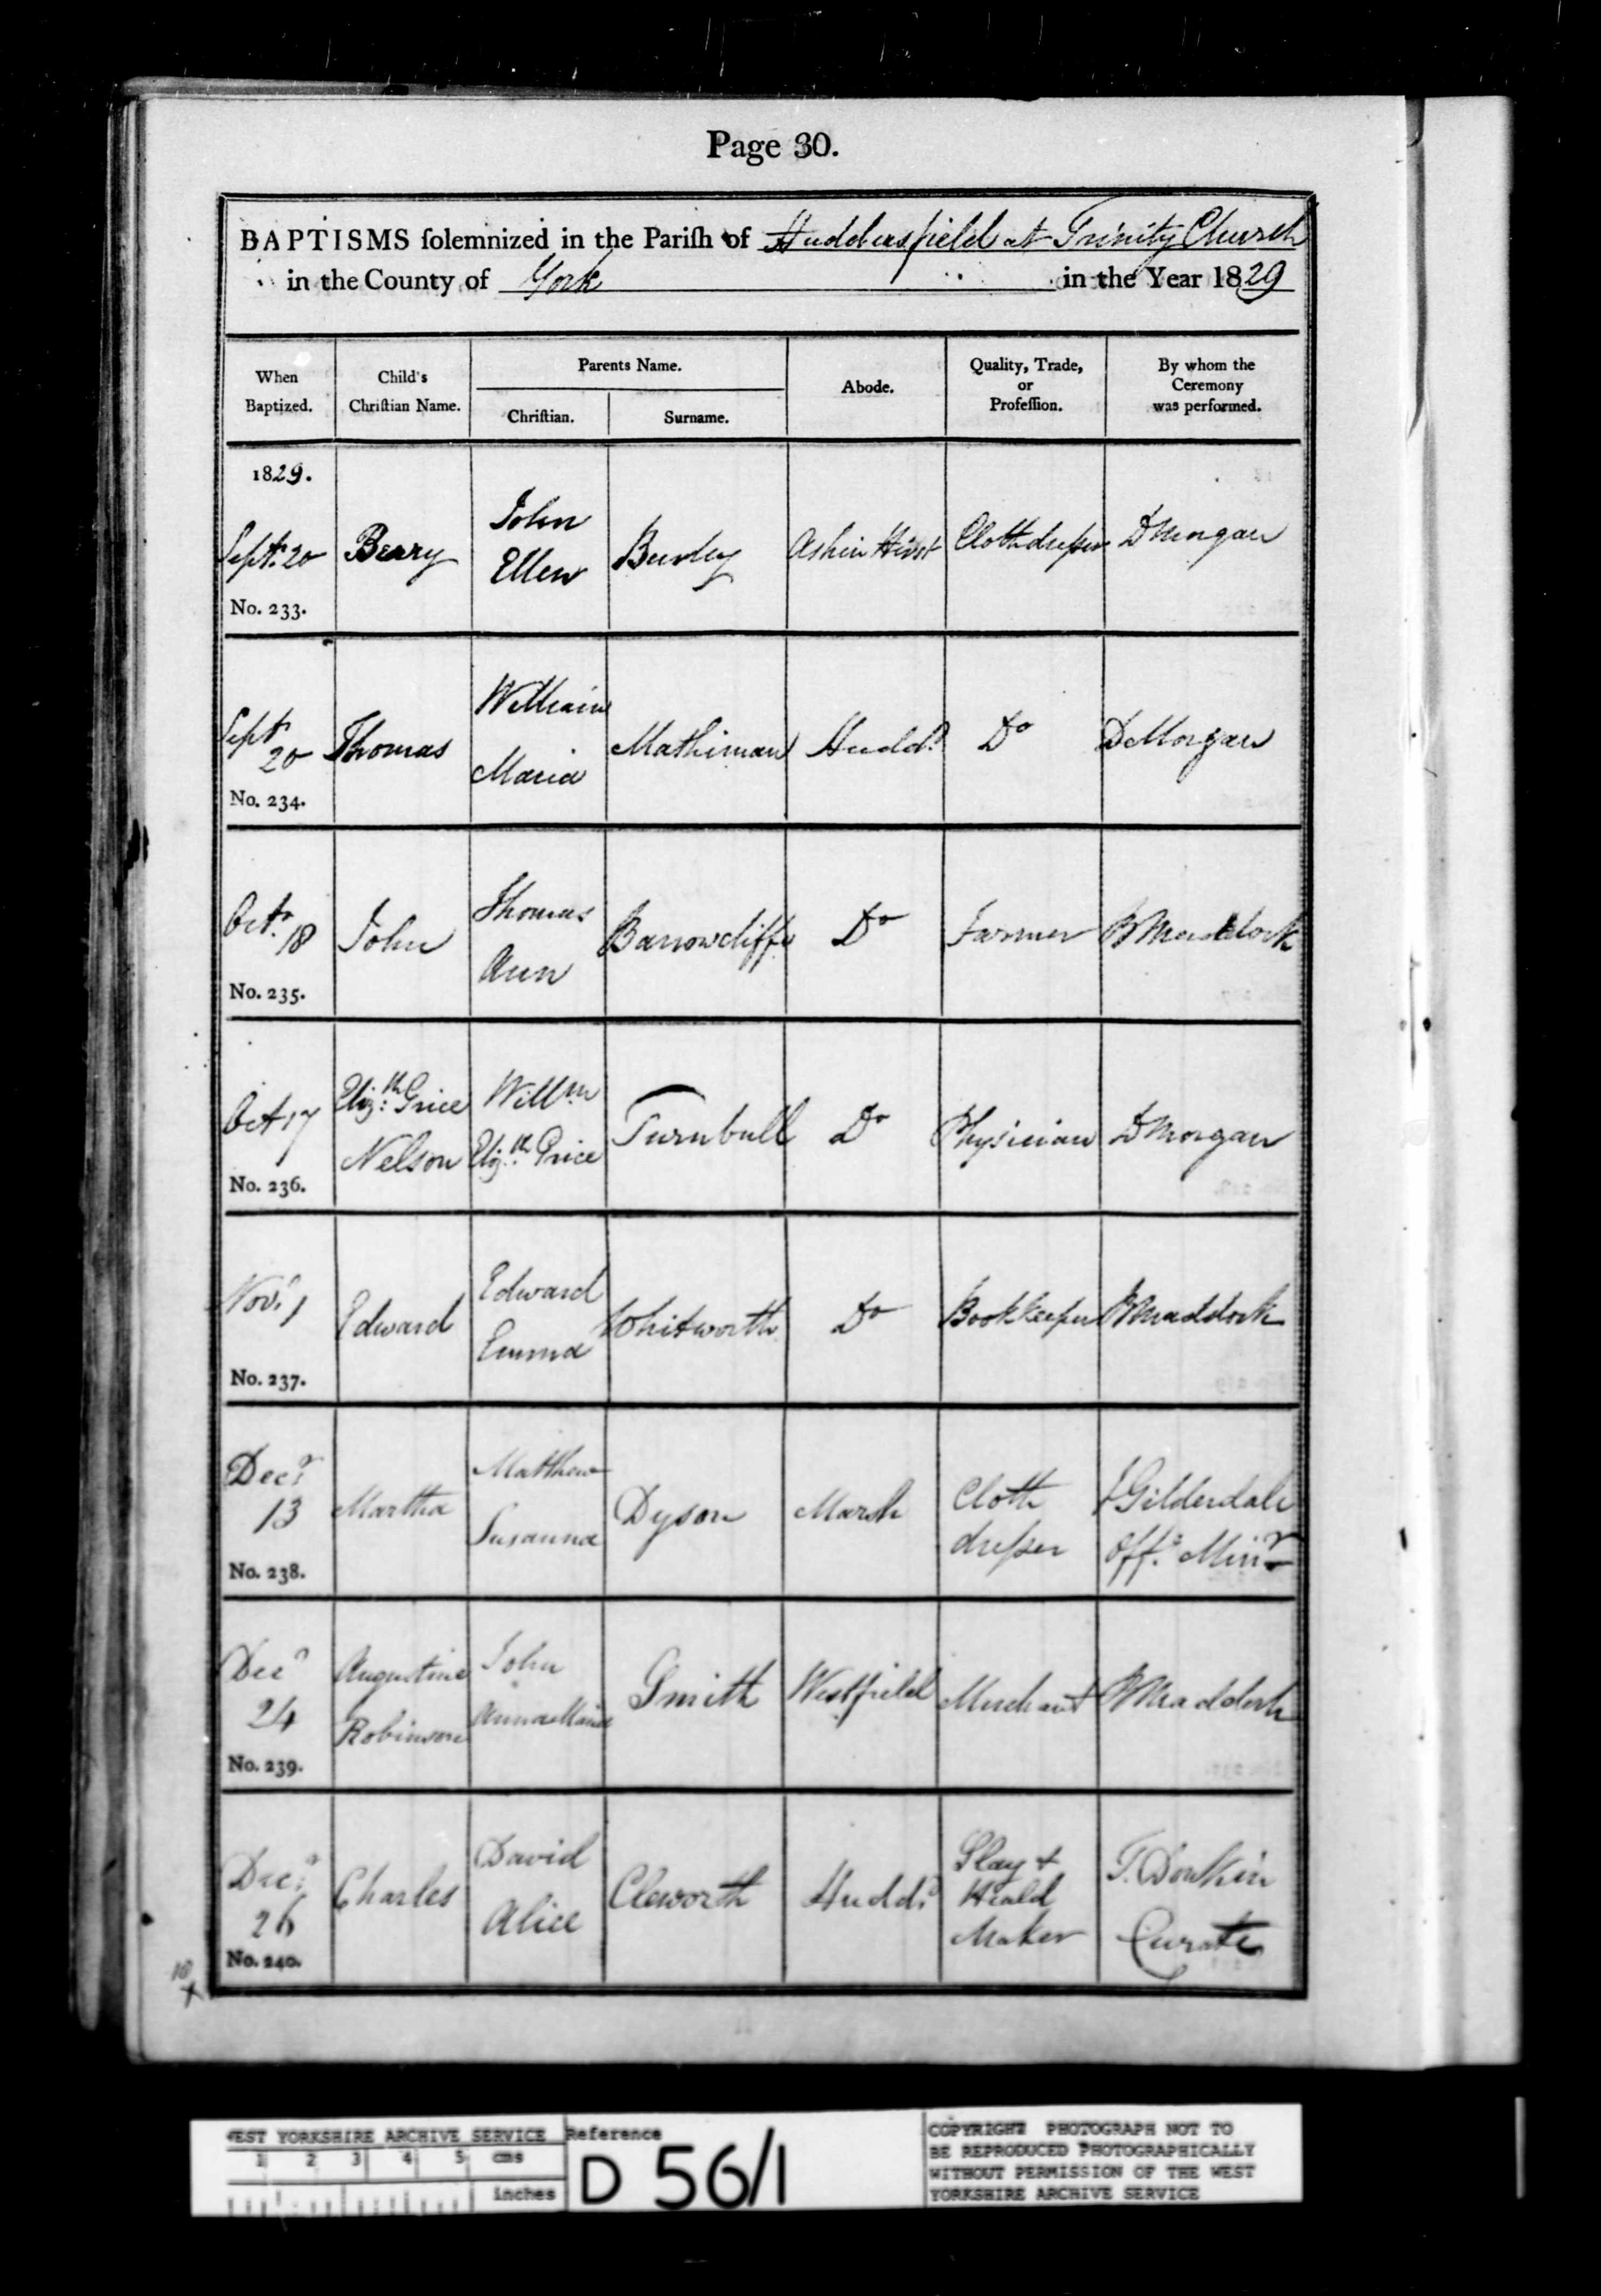 Page 30.
BAPTISMS ſolemnized in the Pariſh of Huddersfield at Trinity Church
in the County of York in the Year 1829
When Baptized.
Child's Chriſtian Name.
Parents Name.
Chriſtian.
Surname.
Abode.
Quality, Trade, or Profeſſion.
By whom the Ceremony was performed.
1829.
Septr. 20 Berry John Ellen Burley Ashin Hirst Clothdreſser D Morgan
No. 233.
Sept 20 Thomas William Maria Mathiman Hudd. Do D Morgan
No. 234.
Octr. 18 John Thomas Ann Barrowcliffe Do Farmer B Maddock
No. 235.
Oct 17 Elizth. Grice Nelson Willm Elizth. Price Turnbull Do Physician D Morgan
No. 236.
Nov. 1 Edward Edward Emma Whitworth Do Bookkeeper B Maddock
No. 237.
Decr. 13 Martha Matthew Susanna Dyson Marsh Cloth dreſser J Gilderdale Offg. Minr
No. 238.
Decr 24 Augustine Robinson John Anna Maria Smith Westfield Merchant B Maddock
No. 239.
Decr. 26 Charles David Alice Cleworth Hudd. Slay + Heald Maker T. Donkin Curate
No. 240.
10
x
WEST YORKSHIRE ARCHIVE SERVICE
1 2 3 4 5 cms
inches
Reference
D 56/1
COPYRIGHT PHOTOGRAPH NOT TO
BE REPRODUCED PHOTOGRAPHICALLY
WITHOUT PERMISSION OF THE WEST
YORKSHIRE ARCHIVE SERVICE